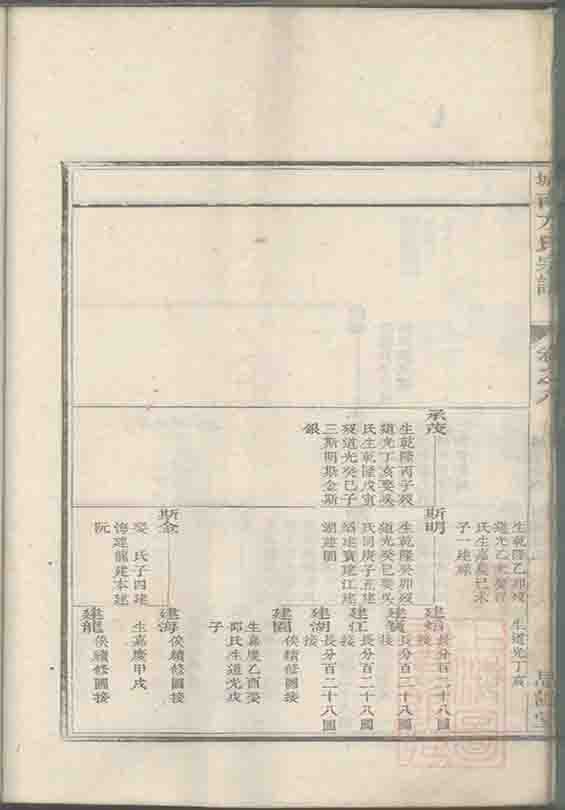 城南方氏宗譜
卷之八
生乾隆乙卯歿
道光乙
氏生嘉慶己未
子一建
生道光丁亥
承茂
生乾隆丙子歿
道光丁亥娶吳
氏生乾隆戊寅
歿道光癸巳子
三斯明斯金斯
銀
斯明
生乾隆癸卯歿
道光癸巳娶吳
氏同庚子五建
建寶建江建
湖建圖
斯金
娶 氏子四建
海建龍建本建
阮
長分百二十八圖
接
建寶
長分百二十八圖
接
建江
長分百二十八圖
接
建湖
長分百二十八圖
接
建圖
俟續修圖接
生嘉慶乙酉娶
邵氏生道光戊
子
建海
俟續修圖接
生嘉慶甲戌
建龍
俟續修圖接